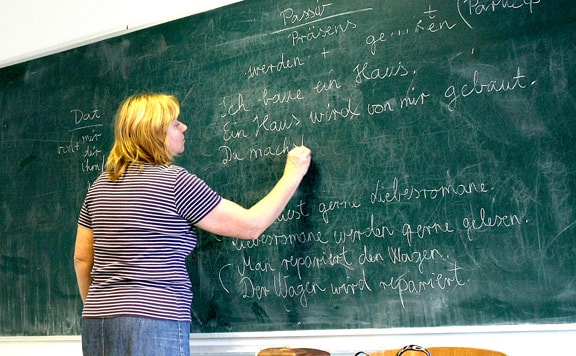 Passiv
Präsens
werden + ge.....t
Ich baue ein Haus.
Ein Haus wird von mir gebaut.
Du mach
Dat
von mir
dir
ihm
liest gerne Liebesromane.
Liebesromane werden gerne gelesen.
Man repariert den Wagen.
Der Wagen wird repariert.